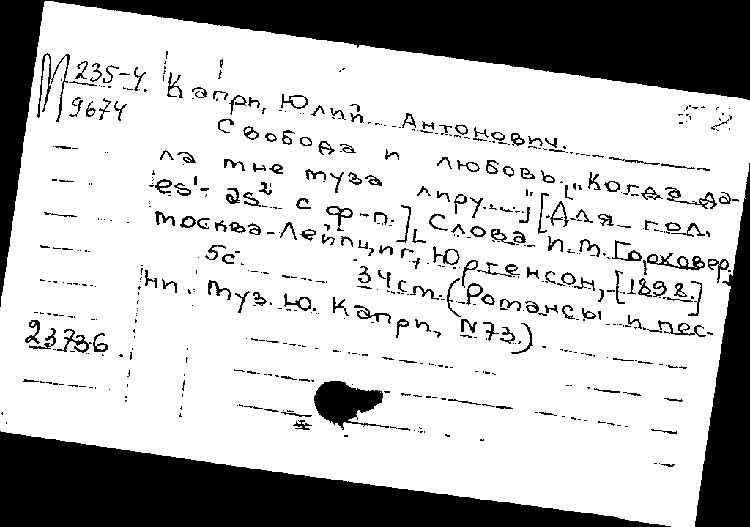 М 235-4. Капри, Юлий Антонович.
9674
Свобода и любовь. ["Когда да-
ла мне муза лиру....."] [Для гол.
es¹- as² с ф-п.], Слова П.М. Горховер,
Москва-Лейпциг, Юргенсон, [1898.]
5с. 34см. (Романсы и пес-
ни. Муз. Ю. Капри, N73.)
23736.